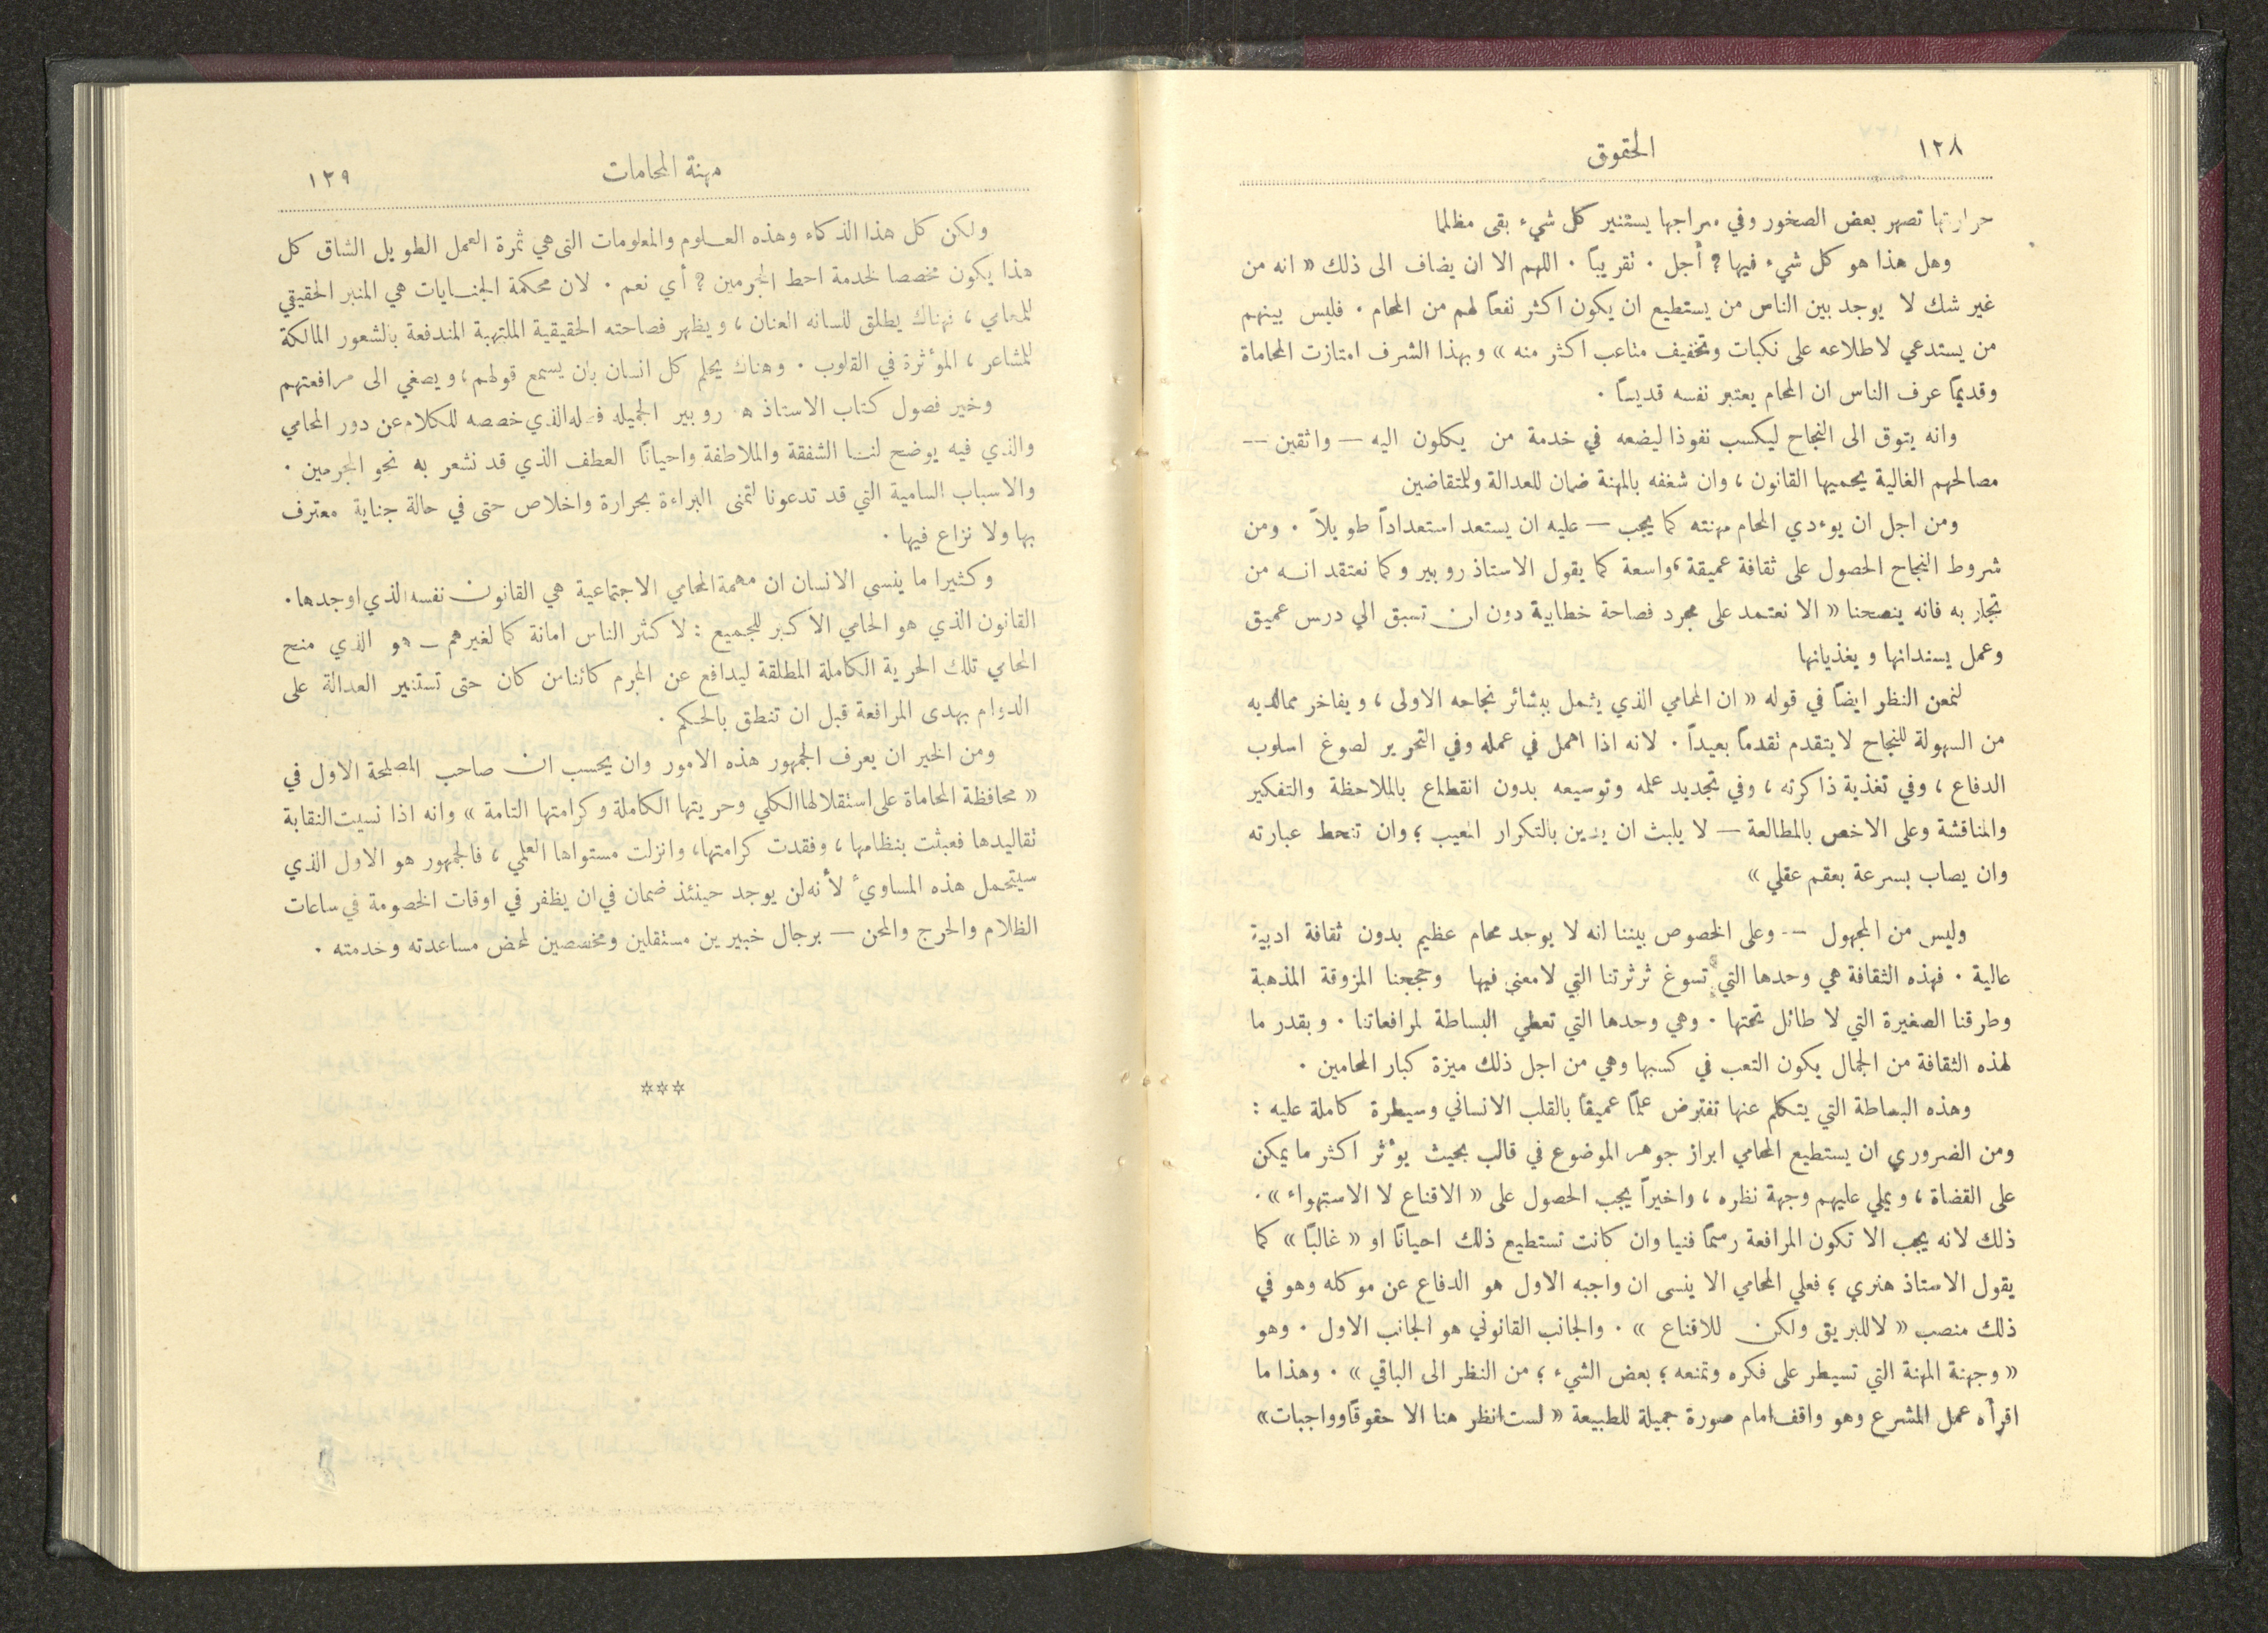 ١٢٨
الحقوق
حرارتها تصهر بعض الصخور وفي سراجها يستنير كل شيء بقى مظلما
وهل هذا هو كل شيء فيها ? أجل . تقريباً . اللهم الا ان يضاف الى ذلك « انه من
غير شك لا يوجد بين الناس من يستطيع ان يكون اكثر نفعاً لهم من المحام . فليس بينهم
من يستدعي لاطلاعه على نكبات وتخفيف متاعب اكثر منه » وبهذا الشرف امتازت المحاماة
وقديماً عرف الناس ان المحام يعتبر نفسه قديساً .
وانه يتوق الى النجاح ليكسب نفوذا ليضعه في خدمة من يكلون اليه — واثقين —
مصالحهم الغالية يحميها القانون ، وان شغفه بالمهنة ضمان للعدالة وللمتقاضين
ومن اجل ان يوءدي المحام مهنته كما يجب — عليه ان يستعد استعداداً طويلاً . ومن
شروط النجاح الحصول على ثقافة عميقة ، واسعة كما يقول الاستاذ روبير وكما نعتقد انه من
تجاربه فانه ينصحنا « الا نعتمد على مجرد فصاحة خطابية دون ان تسبق الي درس عميق
وعمل يسندانها ويغذيانها
لنمعن النظر ايضاً في قوله « ان المحامي الذي يثمل ببشائر نجاحه الاولى ، ويفاخر ممالديه
من السهولة للنجاح لا يتقدم تقدماً بعيداً . لانه اذا اهمل في عمله وفي التحرير لصوغ اسلوب
الدفاع ، وفي تغذية ذاكرته ، وفي تجديد علمه وتوسيعه بدون انقطاع بالملاحظة والتفكير
والمناقشة وعلى الاخص بالمطالعة — لا يلبث ان يدين بالتكرار المعيب ؛ وان تنحط عبارته
وان يصاب بسرعة بعقم عقلي »
وليس من المجهول -- وعلى الخصوص بيننا انه لا يوجد محام عظيم بدون ثقافة ادبية
عالية . فهذه الثقافة هي وحدها التي تسوغ ثرثرتنا التي لا معنى فيها وحججنا المزوقة المذهبة
وطرقنا الصغيرة التي لا طائل تحتها . وهي وحدها التي تعطي البساطة لمرافعاتنا . وبقدر ما
لهذه الثقافة من الجمال يكون التعب في كسبها وهي من اجل ذلك ميزة كبار المحامين .
وهذه البساطة التي يتكلم عنها تفترض علماً عميقاً بالقلب الانساني وسيطرة كاملة عليه :
ومن الضروري ان يستطيع المحامي ابراز جوهر الموضوع في قالب بحيث يوٴثر اكثر ما يمكن
على القضاة ، ويملي عليهم وجهة نظره ، واخيراً يجب الحصول على « الاقناع لا الاستهواء » .
ذلك لانه يجب الا تكون المرافعة رسماً فنيا وان كانت تستطيع ذلك احياناً او « غالباً » كما
يقول الاستاذ هنري ؛ فعلي المحامي الا ينسى ان واجبه الاول هو الدفاع عن موكله وهو في
ذلك منصب « لاللبريق ولكن للاقناع » . والجانب القانوني هو الجانب الاول . وهو
« وجهنة المهنة التي تسيطر على فكره وتمنعه ؛ بعض الشيء ؛ من النظر الى الباقي » . وهذا ما
اقرأه عمل المشرع وهو واقف امام صورة جميلة للطبيعة « لست انظر هنا الا حقوقاً وواجبات »
مهنة المحامات
١٢٩
ولكن كل هذا الذكاء وهذه العلوم والمعلومات التي هي ثمرة العمل الطويل الشاق كل
هذا يكون مخصصا لخدمة احط المجرمين ? أي نعم . لان محكمة الجنايات هي المنبر الحقيقي
للمحامي ، فهناك يطلق للسانه العنان ، ويظهر فصاحته الحقيقية الملتهبة المندفعة بالشعور المالكة
للمشاعر ، الموٴثرة في القلوب . وهناك يحلم كل انسان بان يسمع قولهم ، ويصغي الى مرافعتهم
وخير فصول كتاب الاستاذ ه روبير الجميله فصله الذي خصصه للكلام عن دور المحامي
والذي فيه يوضح لنا الشفقة والملاطفة واحياناً العطف الذي قد نشعر به نحو المجرمين .
والاسباب السامية التي قد تدعونا لتمنى البراءة بحرارة واخلاص حتى في حالة جناية معترف
بها ولا نزاع فيها .
وكثيرا ما ينسي الانسان ان مهمة المحامي الاجتماعية هي القانون نفسه الذي اوجدها .
القانون الذي هو الحامي الاكبر للجميع : لاكثر الناس امانة كما لغيرهم — هو الذي منح
المحامي تلك الحرية الكاملة المطلقة ليدافع عن المجرم كائنا من كان حتى تستنير العدالة على
الدوام بهدى المرافعة قبل ان تنطق بالحكم .
ومن الخير ان يعرف الجمهور هذه الامور وان يحسب ان صاحب المصلحة الاول في
« محافظة المحاماة على استقلالها الكلي وحريتها الكاملة وكرامتها التامة » وانه اذا نسيت النقابة
تقاليدها فعبثت بنظامها ، وفقدت كرامتها ، وانزلت مستواها العلمي ، فالجمهور هو الاول الذي
سيتحمل هذه المساويٴ لأنه لن يوجد حينئذ ضمان في ان يظفر في اوقات الخصومة في ساعات
الظلام والحرج والمحن — برجال خبيرين مستقلين ومخصصين لمحض مساعدته وخدمته .
***